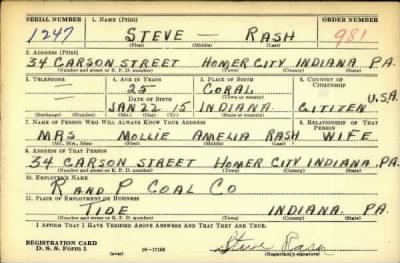 SERIAL NUMBER 1. Name (Print) ORDER NUMBER
1247 STEVE — RASH 981
(First) (Middle) (Last)
2. Address (Print)
34 CARSON STREET HOMER CITY INDIANA PA.
(Number and street or R. F. D. number) (Town) (County) (State)
3. Telephone 4. Age in Years 5. Place of Birth 6. Country of Citizenship
— 25 CORAL U.S.A.
Date of Birth (Town or county)
— JAN 22 15 INDIANA CITIZEN
(Exchange) (Number) (Mo.) (Day) (Yr.) (State or country)
7. Name of Person Who Will Always Know Your Address 8. Relationship of That Person
MRS MOLLIE AMELIA RASH WIFE
(Mr., Mrs., Miss) (First) (Middle) (Last)
9. Address of That Person
34 CARSON STREET HOMER CITY INDIANA PA.
(Number and street or R. F. D. number) (Town) (County) (State)
10. Employer's Name
R AND P COAL CO
11. Place of Employment or Business
TIDE INDIANA PA.
(Number and street or R. F. D. number) (Town) (County) (State)
I Affirm That I Have Verified Above Answers and That They Are True.
REGISTRATION CARD
D. S. S. Form 1 (over) 16—17105 Steve Rash
(Registrant's signature)